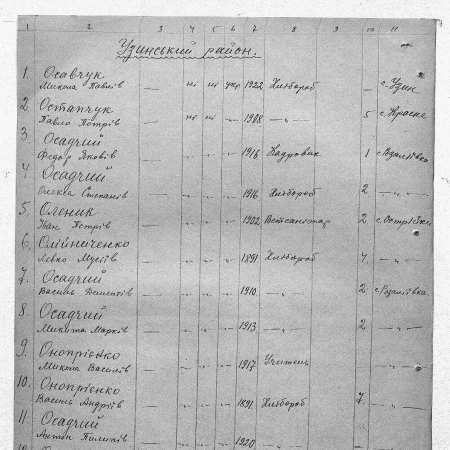 1 2 3 4 5 6 7 8 9 10 11
Узинський район.
1. Осавчук
Микола Павлів — ні ні укр 1922 Хлібороб — с. Узин
2. Остапчук
Павло Петрів — ні ні " 1908 — " — 5 с. Красне
3. Осадчий
Федор Яковів — " " " 1916 Кадровик 1
4. Осадчий
Олекса Степанів — " " " 1916 Хлібороб 2 — " —
5. Оленик
Іван Петрів — " " " 1902 Ветсанітар 2 с. Острійки
6. Олійниченко
Левко Мусіїв — " " " 1891 Хлібороб 4 — " —
7. Осадчий
Василь — " " " 1910 — " — 2
8. Осадчий
Микита Марків — " " " 1913 — " — 2 — " —
9. Онопрієнко
Микола Василів — " " " 1917 Учитель — " —
10. Онопрієнко
Василь Андріїв — " " " 1891 Хлібороб 7 — " —
11. Осадчий
Антон Пилипів — " " " 1920 — " —